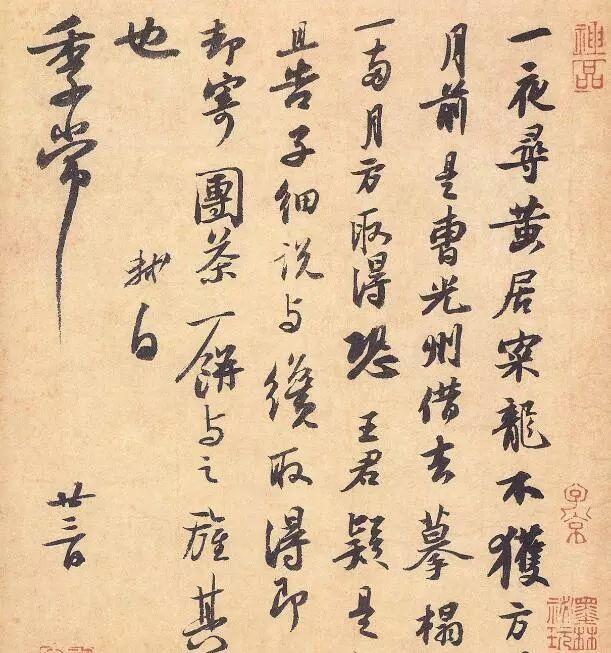 一夜尋黃居寀龍不獲方
月前是曹光州借去摹搨
一兩月方取得恐王君疑是
且告子細說與纔取得即
却寄團茶一餅與之旌其
也
軾白
季常
廿三日
神品
子京
墨林秘玩